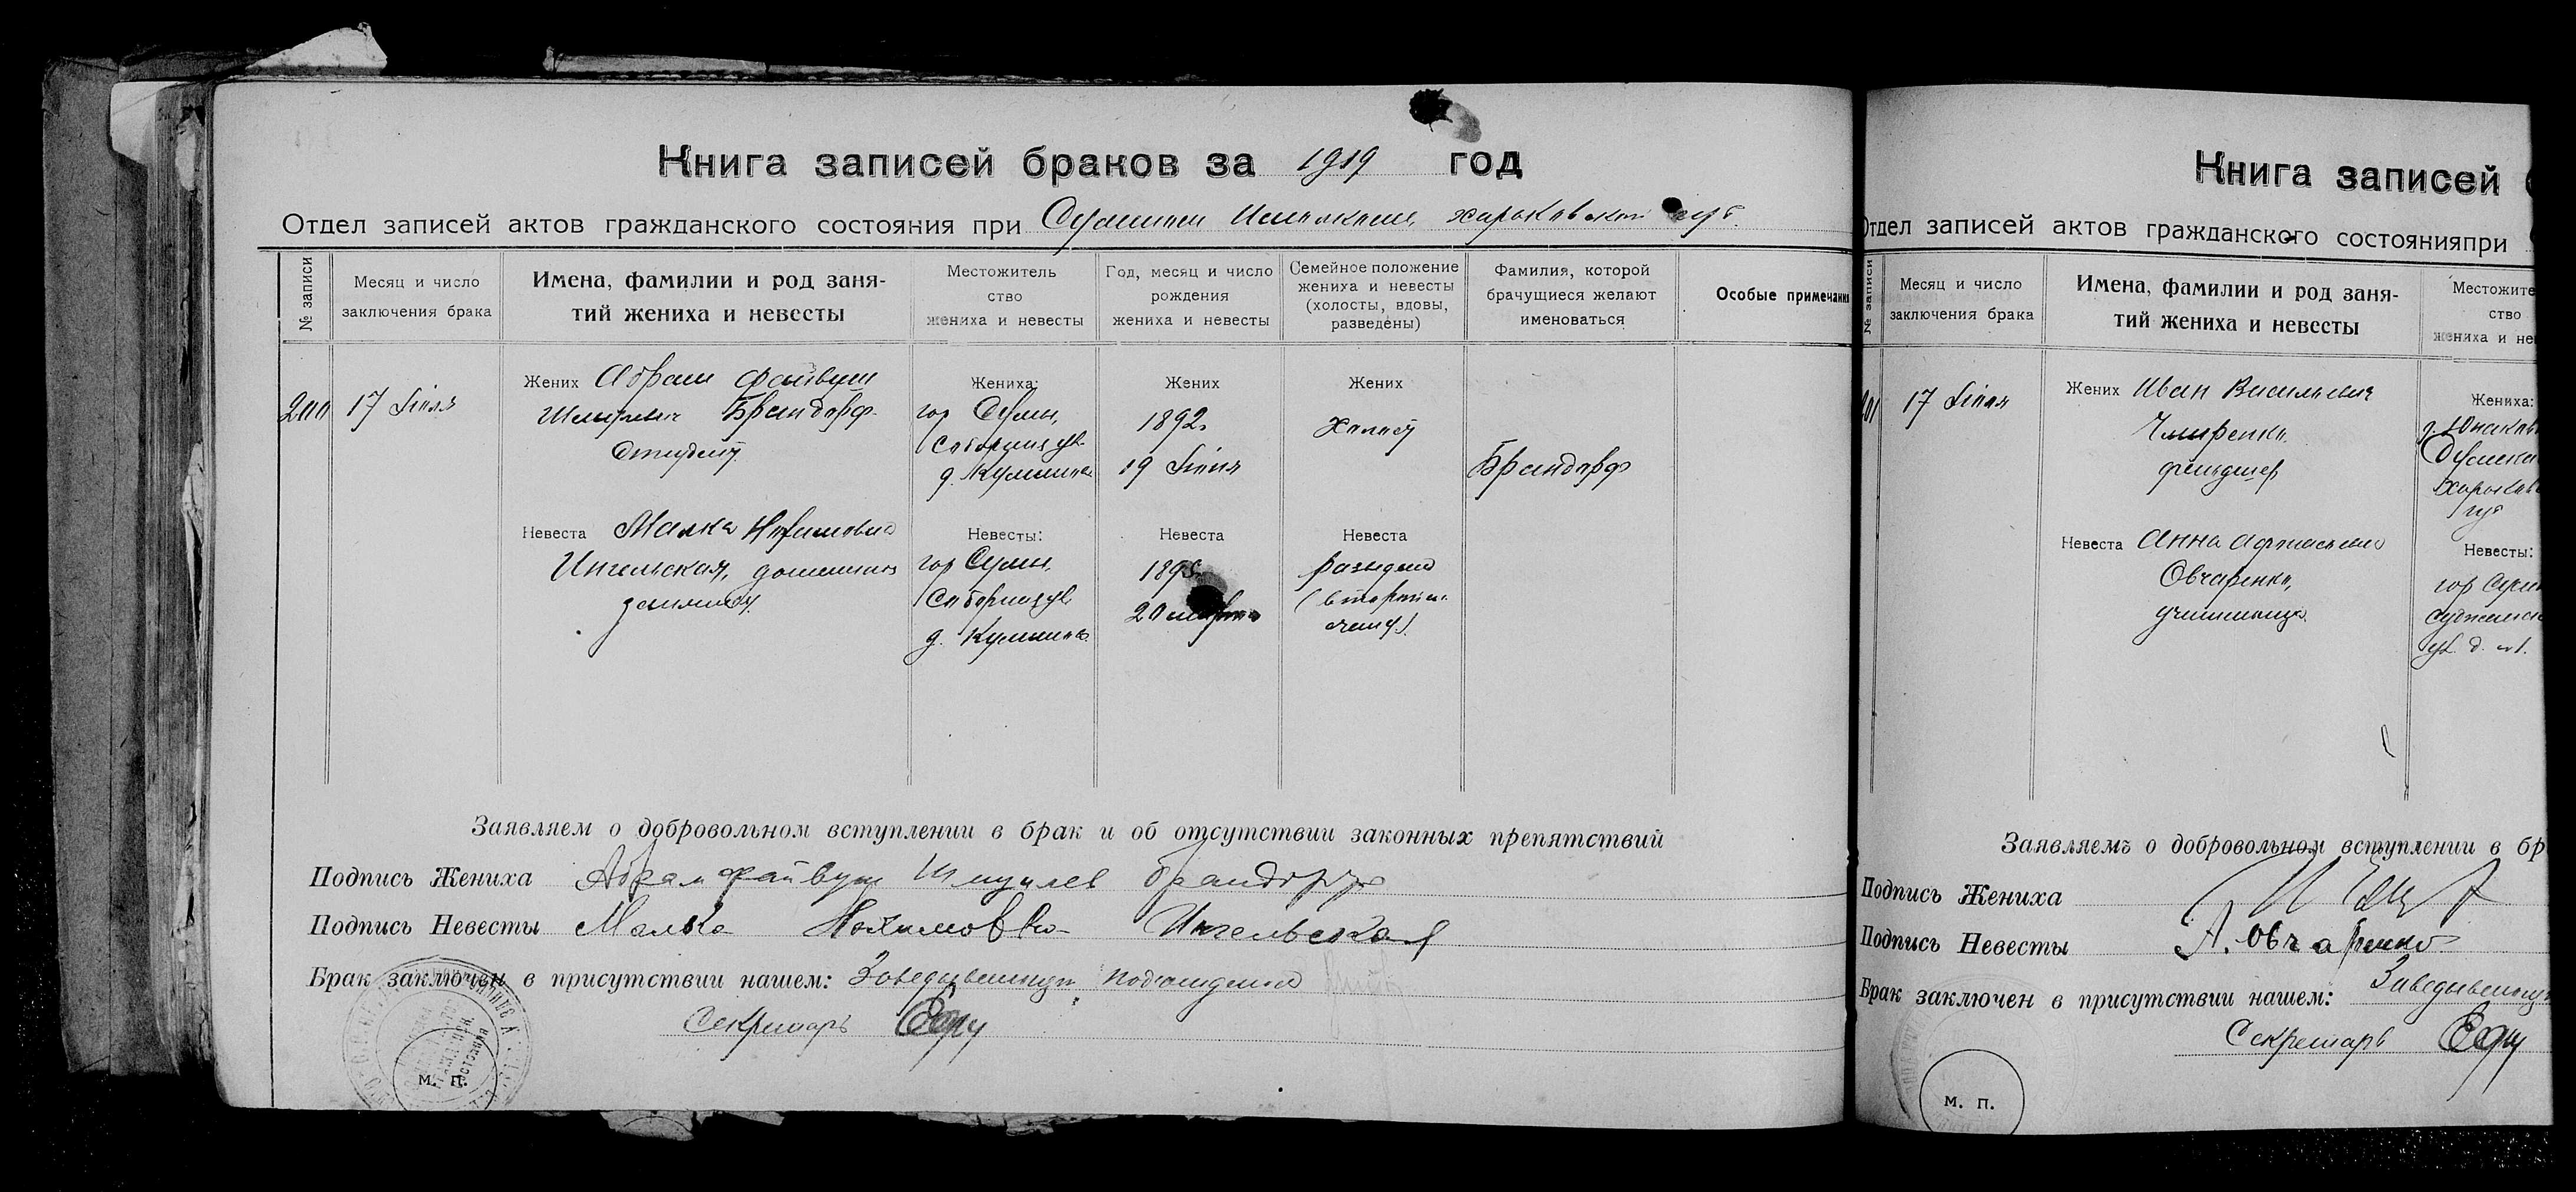 Книга записей браков за 1919 год
Отдел записей актов гражданского состояния при Сумском Исполкоме, харьковской губ.
№ записи
Месяц и число
заключения брака
Имена, фамилии и род заня-
тий жениха и невесты
Местожитель
ство
жениха и невесты
Год, месяц и число
рождения
жениха и невесты
Семейное положение
жениха и невесты
(холосты, вдовы,
разведены)
Фамилия, которой
брачущиеся желают
именоваться
Особые примечания
200
17 Июля
Жених Абрам Файвуш
Шмулевич Брандорф
Студент
Жениха:
гор Сумы,
Соборная ул
д.
Жених
1892
19
Жених
Холост
Брандорф
Невеста Малка Нохимовна
Ингельская, домашних
занятий
Невесты:
гор Сумы,
Соборная ул
д.
Невеста
20 марта
Невеста
разведена
Заявляем о добровольном вступлении в брак и об отсутствии законных препятствий
Подпись Жениха Абрам Файвуш Шмулев Брандорф
Подпись Невесты Малка Нохимовна Ингельская
Брак заключен в присутствии нашем: Заведывающий подотделом
Секретарь
м. п.
Книга записей
Отдел записей актов гражданского состоянияпри
№ записи
Месяц и число
заключения брака
Имена, фамилии и род заня-
тий жениха и невесты
Местожите
ство
жениха и не
201
17 Июля
Жених Иван Васильевич
фельдшер
Жениха:
Невеста Анна Афанасьевна
Овчаренко,
учительница
Невесты:
гор Сумы
Заявляемъ о добровольном вступлении в бр
Подпись Жениха
Подпись Невесты А. Овчаренко
Брак заключен в присутствии нашем: Заведывающий
Секретарь
м. п.